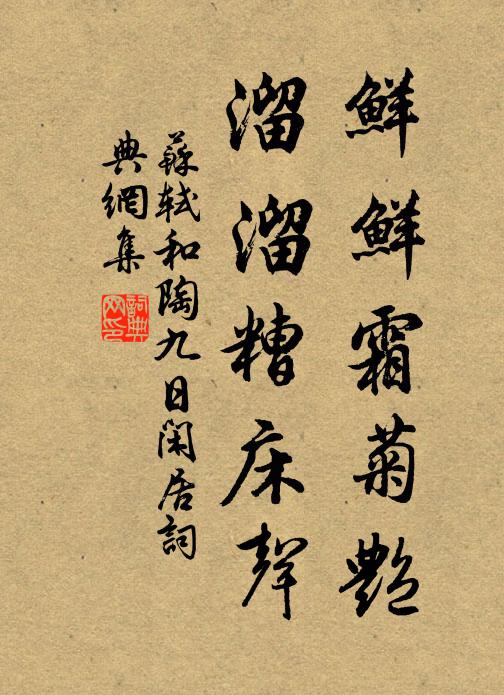 鮮鮮霜菊艷
溜溜糟床聲
蘇軾和陶九日閑居詞
典網集
詞典
网印